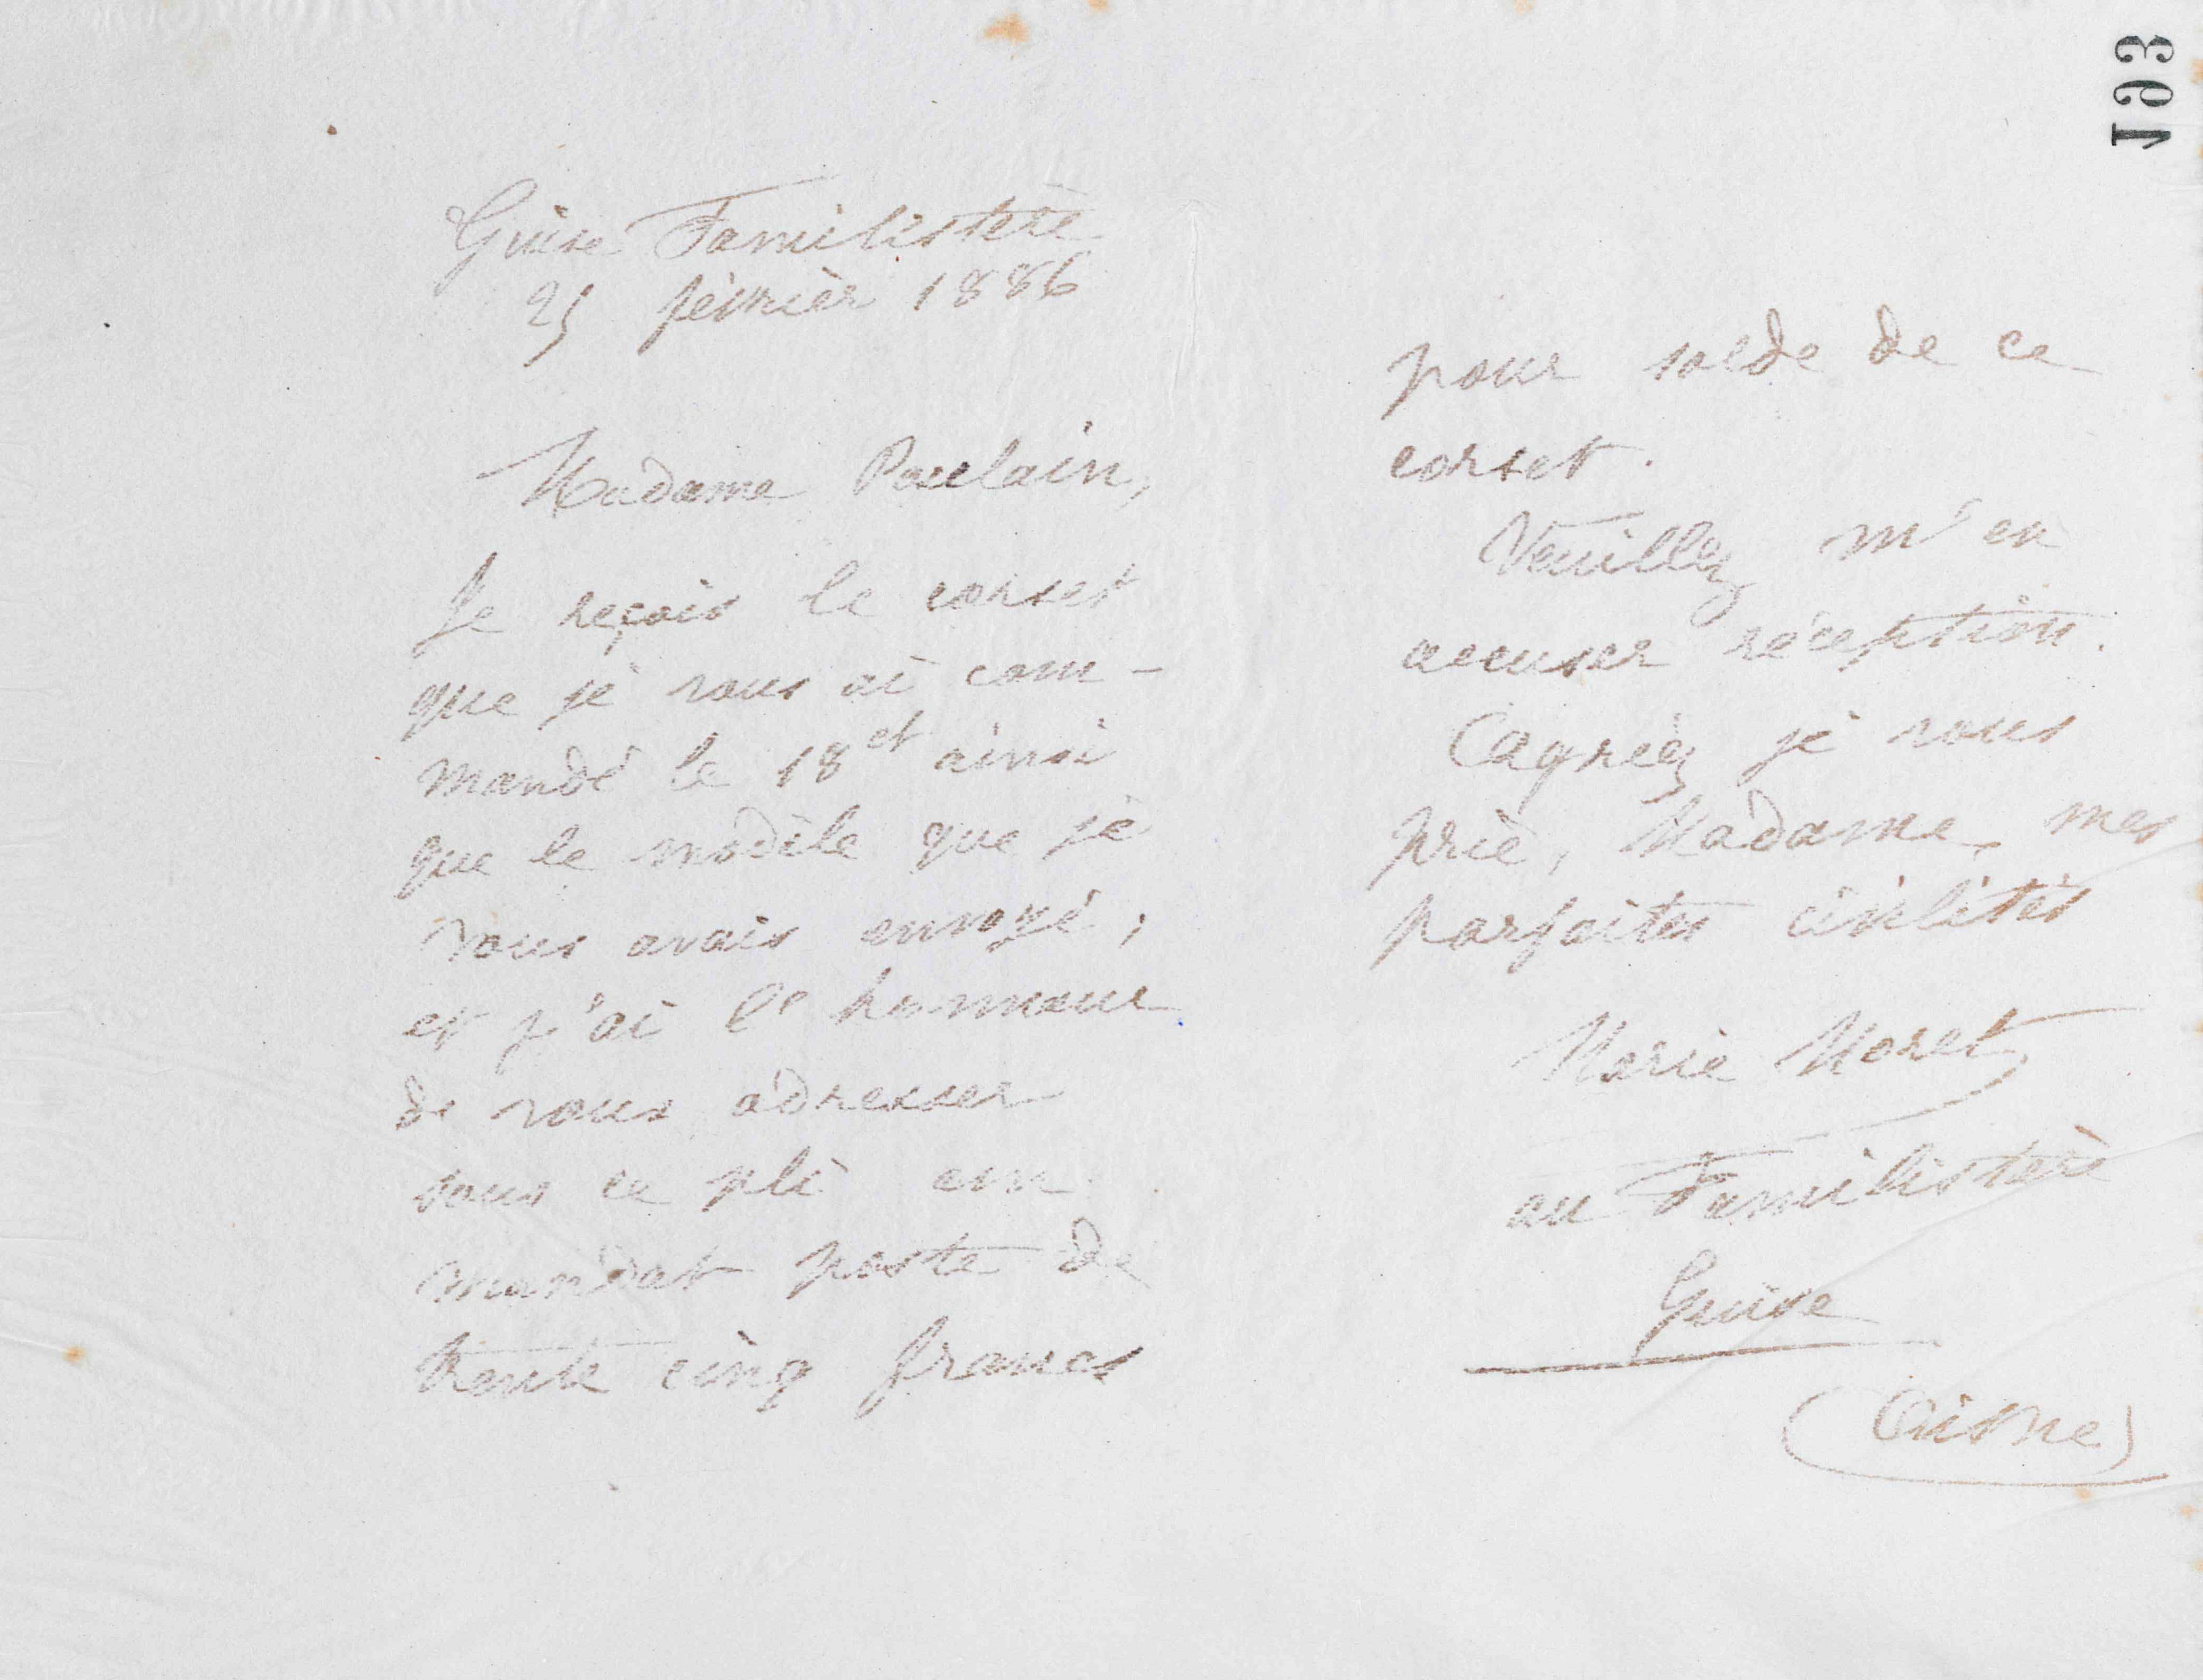 Guise Familistère
25 février 1886
Madame Poulain,
Je reçois le corset
que je vous ai com-
mandé le 18 et ainsi
que le modèle que je
vous avais envoyé,
et j'ai l'honneur
de vous adresser
sous ce pli un
mandat poste de
trente cinq francs
193
pour solde de ce
corset.
Veuillez m'en
accuser réception.
Agréez je vous
prie, Madame, mes
parfaites civilités
Marie Moret
au Familistère
Guise
(Aisne)